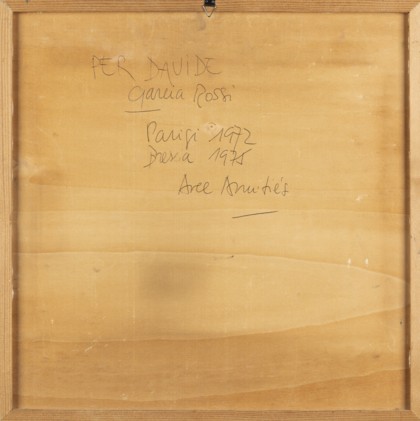 PER DAVIDE
Garcia Rossi
Parigi 1972
Brescia 1975
Avec Amitiés